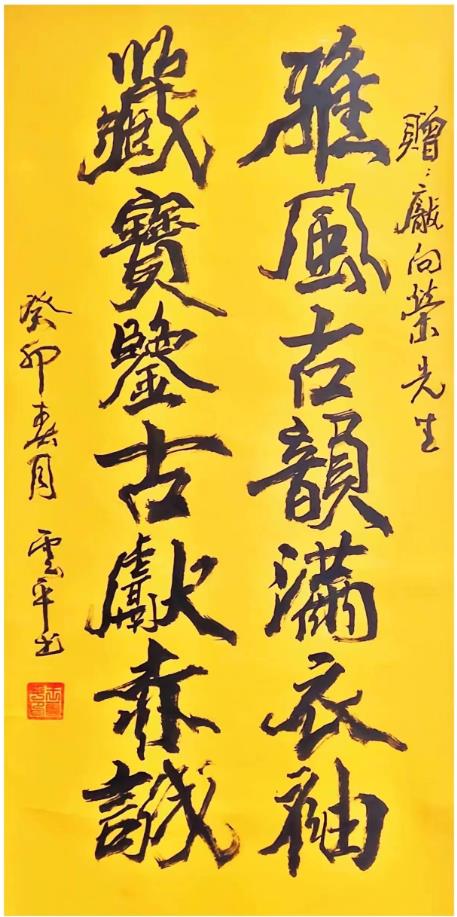 贈:廠向榮先生
雅風古韻滿衣袖
藏寶鑒古獻赤誠
癸卯春月 雲平书